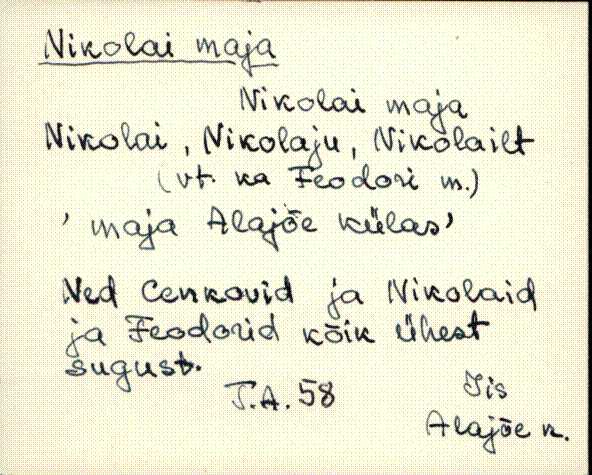 Nikolai maja
Nikolai maja
Nikolai, Nikolaju, Nikolailt
(vt. ka Feodori m.)
' maja Alajõe külas'
Ned Cenkovid ja Nikolaid
ja Feodorid kõik ühest
sugust.
T.A. 58
Iis
Alajõe k.